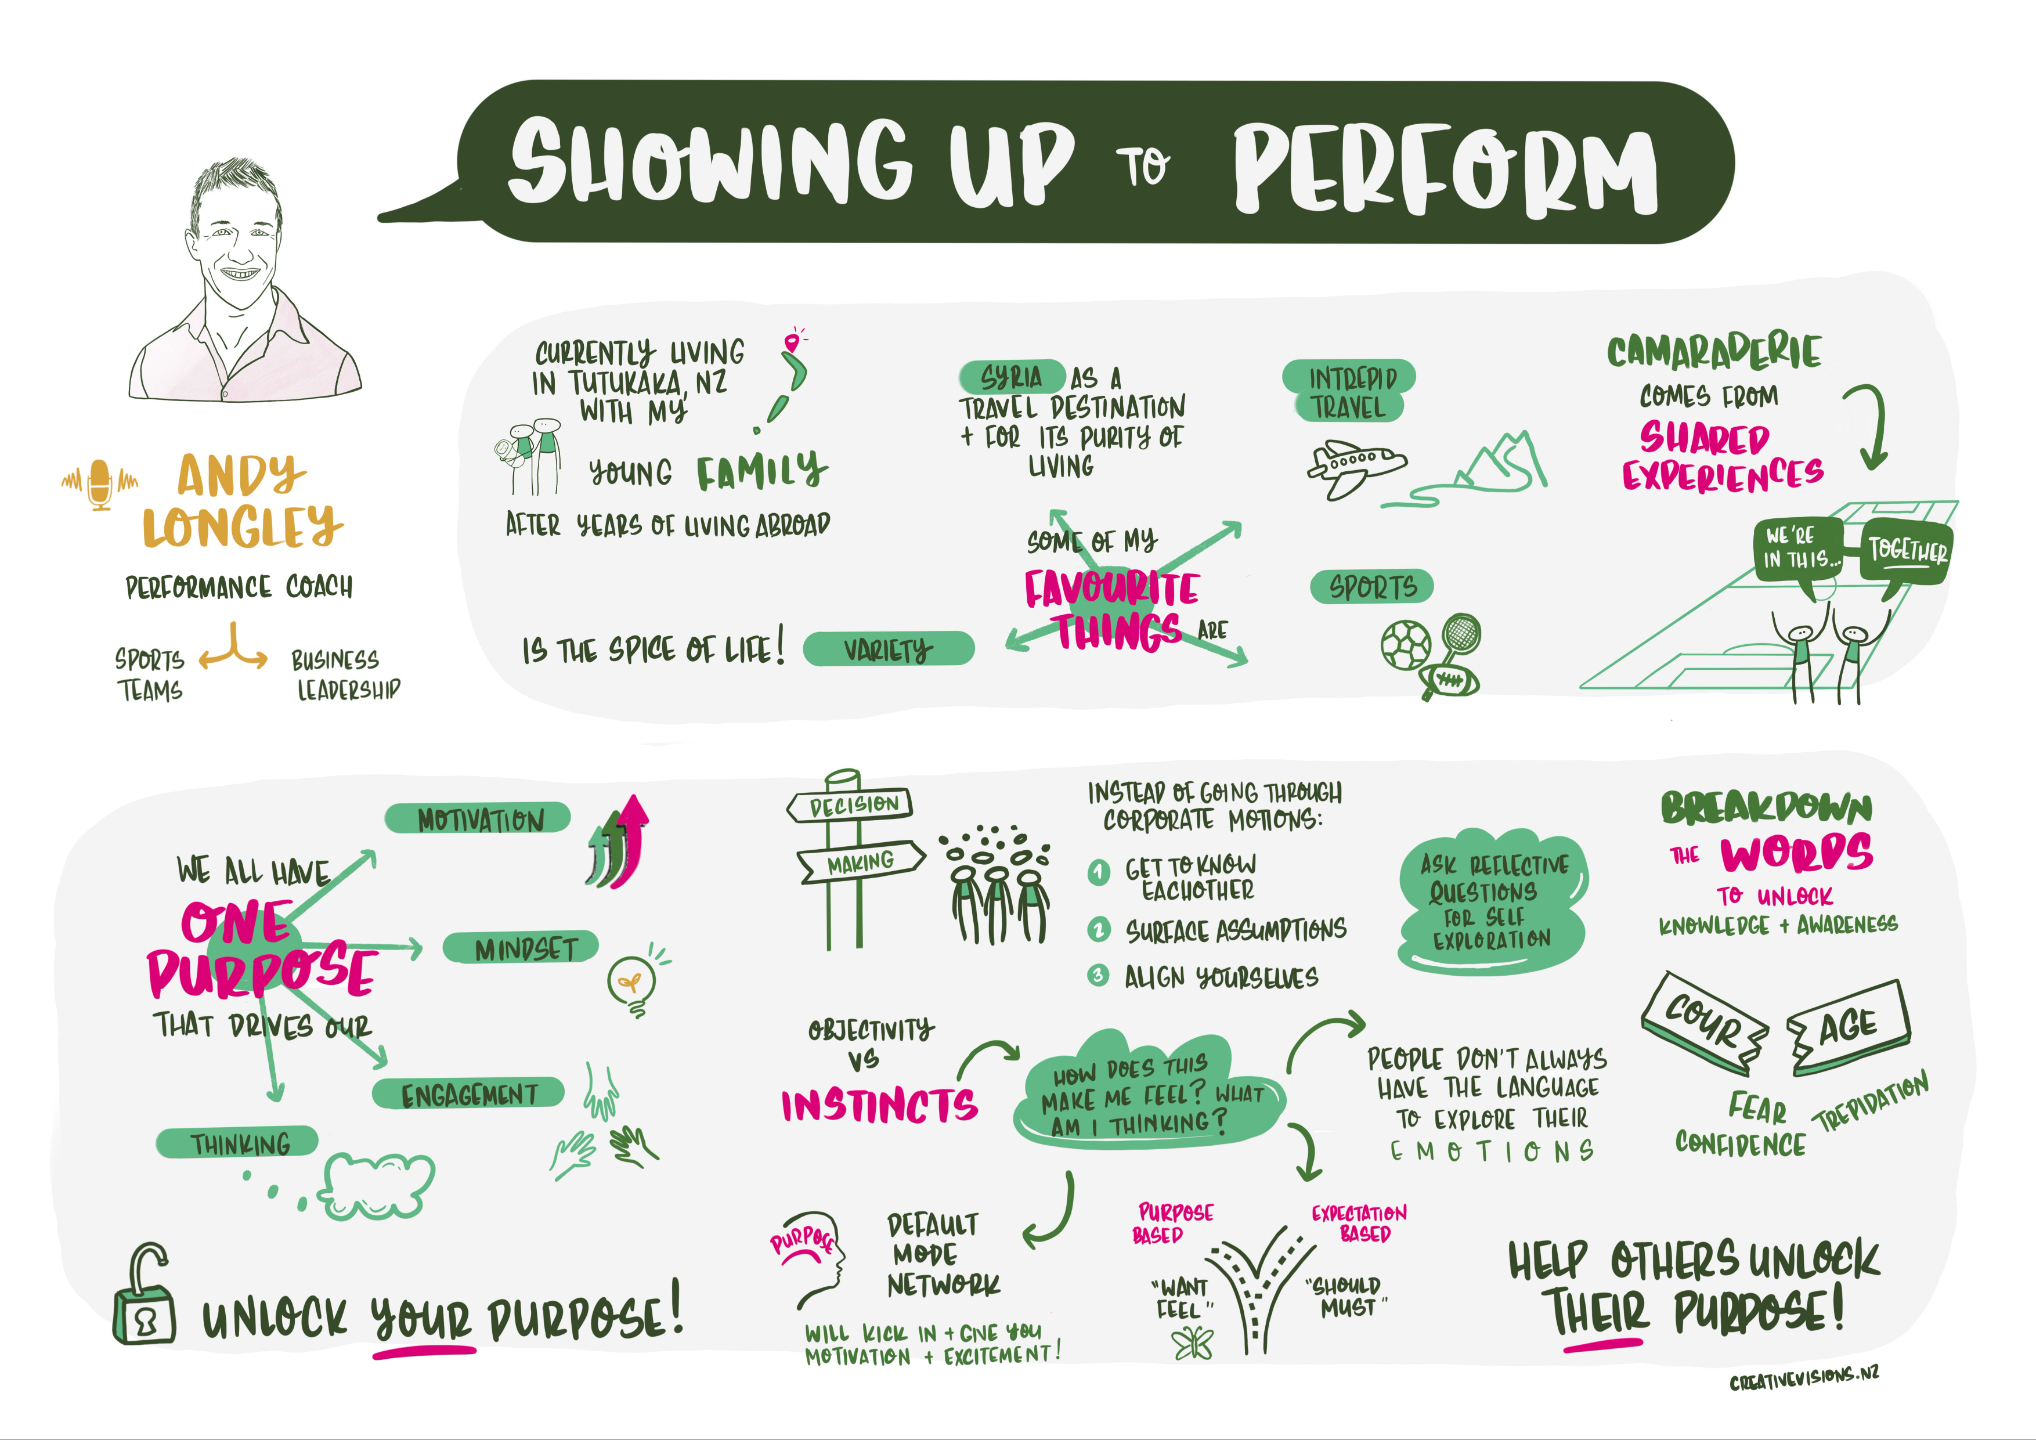 SHOWING UP TO PERFORM
ANDY
LONGLEY
PERFORMANCE COACH
SPORTS
TEAMS
BUSINESS
LEADERSHIP
CURRENTLY LIVING
IN TUTUKAKA, NZ
WITH MY
YOUNG FAMILY
AFTER YEARS OF LIVING ABROAD
SOME OF MY
FAVOURITE
THINGS ARE
SYRIA AS A
TRAVEL DESTINATION
+ FOR ITS PURITY OF
LIVING
INTREPID
TRAVEL
SPORTS
VARIETY
IS THE SPICE OF LIFE!
CAMARADERIE
COMES FROM
SHARED
EXPERIENCES
WE'RE
IN THIS...
TOGETHER
WE ALL HAVE
ONE
PURPOSE
THAT DRIVES OUR
MOTIVATION
MINDSET
ENGAGEMENT
THINKING
UNLOCK YOUR PURPOSE!
DECISION
MAKING
INSTEAD OF GOING THROUGH
CORPORATE MOTIONS:
1 GET TO KNOW
EACHOTHER
2 SURFACE ASSUMPTIONS
3 ALIGN YOURSELVES
ASK REFLECTIVE
QUESTIONS
FOR SELF
EXPLORATION
OBJECTIVITY
VS
INSTINCTS
HOW DOES THIS
MAKE ME FEEL? WHAT
AM I THINKING?
PEOPLE DON'T ALWAYS
HAVE THE LANGUAGE
TO EXPLORE THEIR
EMOTIONS
PURPOSE
DEFAULT
MODE
NETWORK
WILL KICK IN + GIVE YOU
MOTIVATION + EXCITEMENT!
PURPOSE
BASED
"WANT
FEEL"
EXPECTATION
BASED
"SHOULD
MUST"
BREAKDOWN
THE WORDS
TO UNLOCK
KNOWLEDGE + AWARENESS
COUR
AGE
FEAR
CONFIDENCE
TREPIDATION
HELP OTHERS UNLOCK
THEIR PURPOSE!
CREATIVEVISIONS.NZ